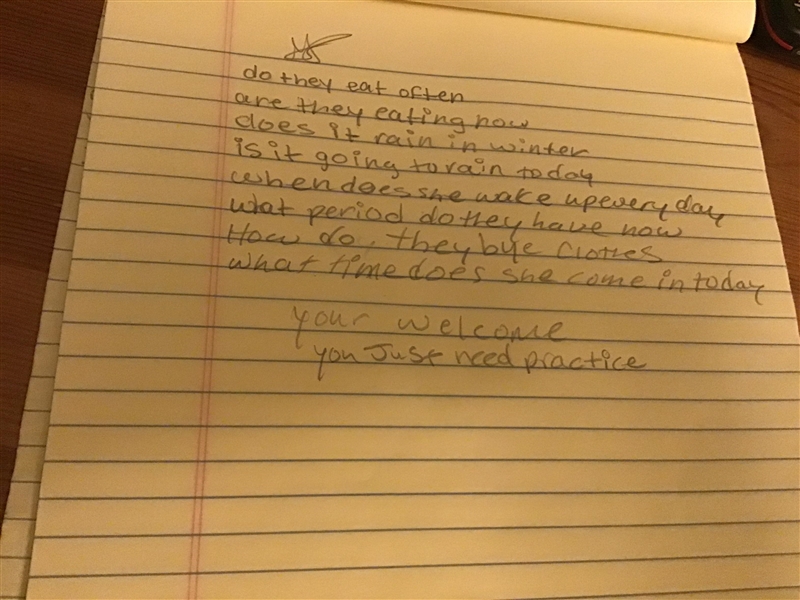 do they eat often
are they eating now
does it rain in winter
is it going to rain today
when does she wake up every day
wat period do they have now
How do, they bye clothes
what time does she come in today
your welcome
you Just need practice